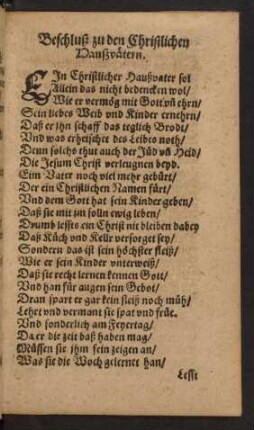 Beschluß zu den Christlichen
Haußvätern.
EIn Christlicher Haußvater sol
Allein das nicht bedencken wol/
Wie er vermög mit Got vñ ehrn/
Sein liebes Weib vnd Kinder ernehrn/
Daß er jhn schaff das teglich Brodt/
Vnd was erheischet des Leibes noth/
Denn solchs thut auch der Jüd vñ Heid/
Die Jesum Christ verleugnen beyd.
Eim Vater noch viel mehr gebürt/
Der ein Christlichen Namen fürt/
Vnd dem Gott hat sein Kinder geben/
Daß sie mit jm solln ewig leben/
Drumb lessts ein Christ nit bleiben dabey
Daß Küch vnd Kellr versorget sey/
Sondern das ist sein höchster fleiß/
Wie er sein Kinder vnterweiß/
Daß sie recht lernen kennen Gott/
Vnd han für augen sein Gebot/
Dran spart er gar kein fleiß noch müh/
Lehrt vnd vermant sie spat vnd früe.
Vnd sonderlich am Feyertag/
Da er die zeit baß haben mag/
Müssen sie jhm sein zeigen an/
Was sie die Woch gelernet han/
Lesst